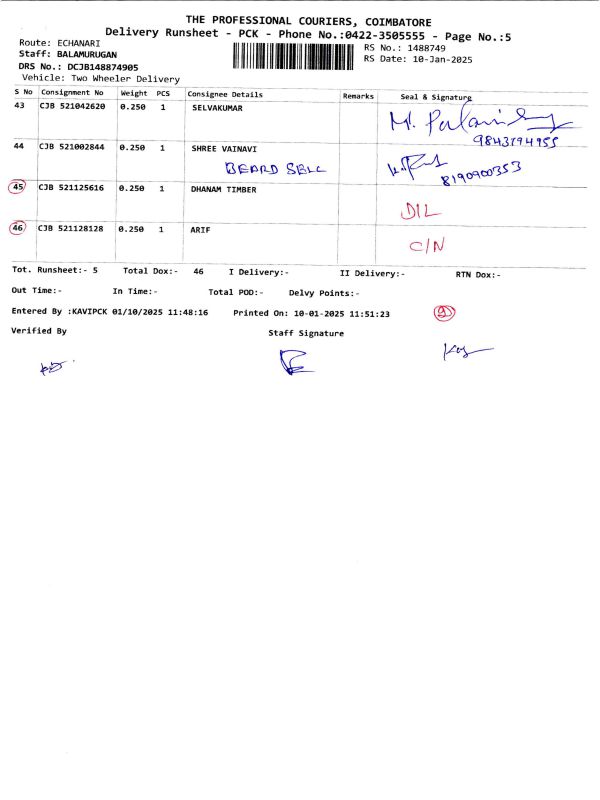 THE PROFESSIONAL COURIERS, COIMBATORE
Delivery Runsheet - PCK - Phone No.:0422-3505555 - Page No.:5
Route: ECHANARI
RS No.: 1488749
Staff: BALAMURUGAN
RS Date: 10-Jan-2025
DRS No.: DCJB148874905
Vehicle: Two Wheeler Delivery
S No Consignment No Weight PCS Consignee Details Remarks Seal & Signature
43 CJB 521042620 0.250 1 SELVAKUMAR
9843794955
44 CJB 521002844 0.250 1 SHREE VAINAVI
8190900353
45 CJB 521125616 0.250 1 DHANAM TIMBER
D/L
46 CJB 521128128 0.250 1 ARIF
C/N
Tot. Runsheet:- 5 Total Dox:- 46 I Delivery:- II Delivery:- RTN Dox:-
Out Time:- In Time:- Total POD:- Delvy Points:-
Entered By :KAVIPCK 01/10/2025 11:48:16 Printed On: 10-01-2025 11:51:23
Verified By Staff Signature